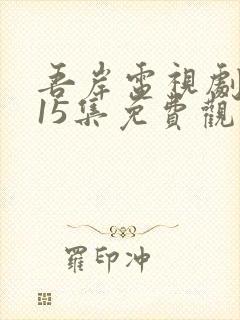 吾岸電視劇
15集免費觀
羅印沖